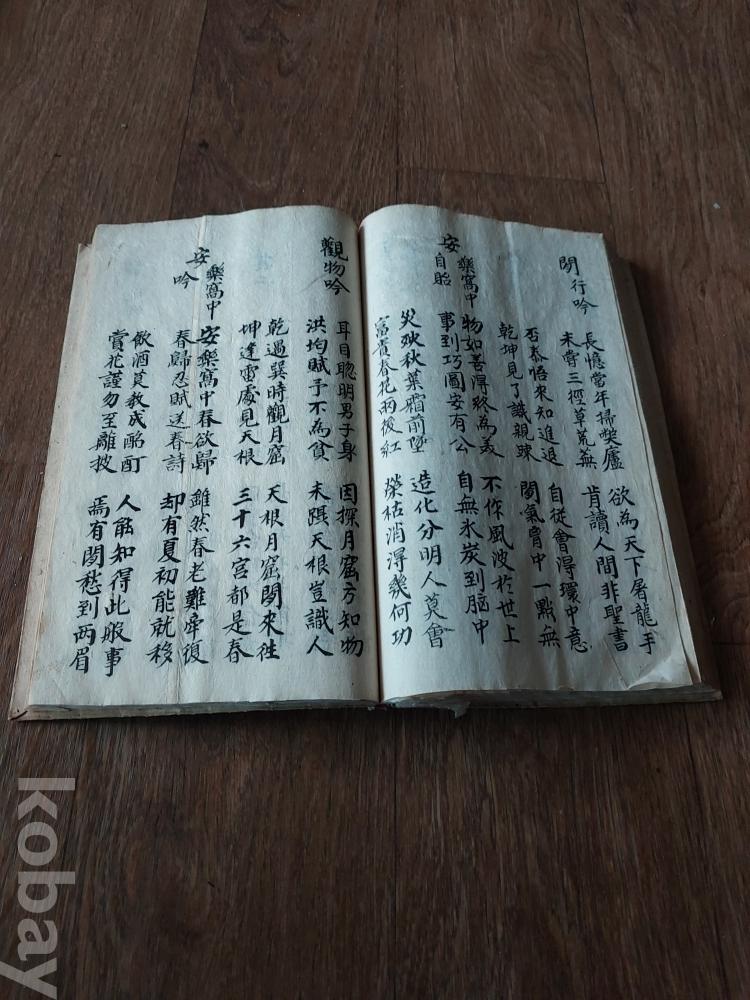 閒行吟
長憶當年掃弊廬
未嘗三徑草荒蕪
欲為天下屠龍手
肯讀人間非聖書
否泰悟來知進退
乾坤見了識親疎
自從會得環中意
閒氣胷中一點無
安樂窩中自貽
物如善得終為美
事到巧圖安有公
不作風波於世上
自無氷炭到脑中
災殃秋葉霜前墜
富貴春花雨後紅
造化分明人莫會
榮枯消得幾何功
觀物吟
耳目聦明男子身
洪均賦予不為貧
因探月窟方知物
未躡天根豈識人
乾過巽時觀月窟
坤逢雷處見天根
天根月窟閒來往
三十六宮都是春
安樂窩中吟
安樂窩中春欲歸
春歸忍賦送春詩
雖然春老難牽復
却有夏初能就移
飲酒莫教成酩酊
賞花謹勿至離披
人能知得此般事
焉有閒愁到兩眉
kobay